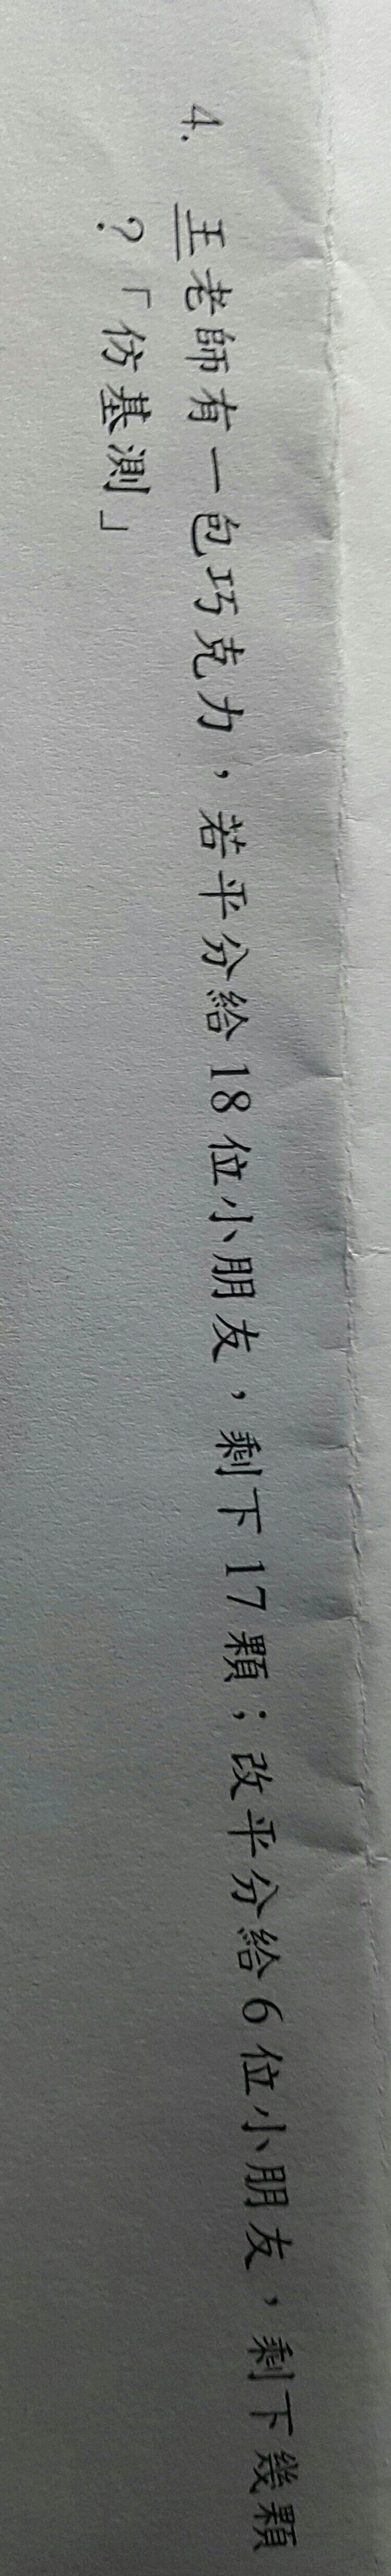 4. 王老師有一包巧克力，若平分給18位小朋友，剩下17顆；改平分給6位小朋友，剩下幾顆
？「仿基測」